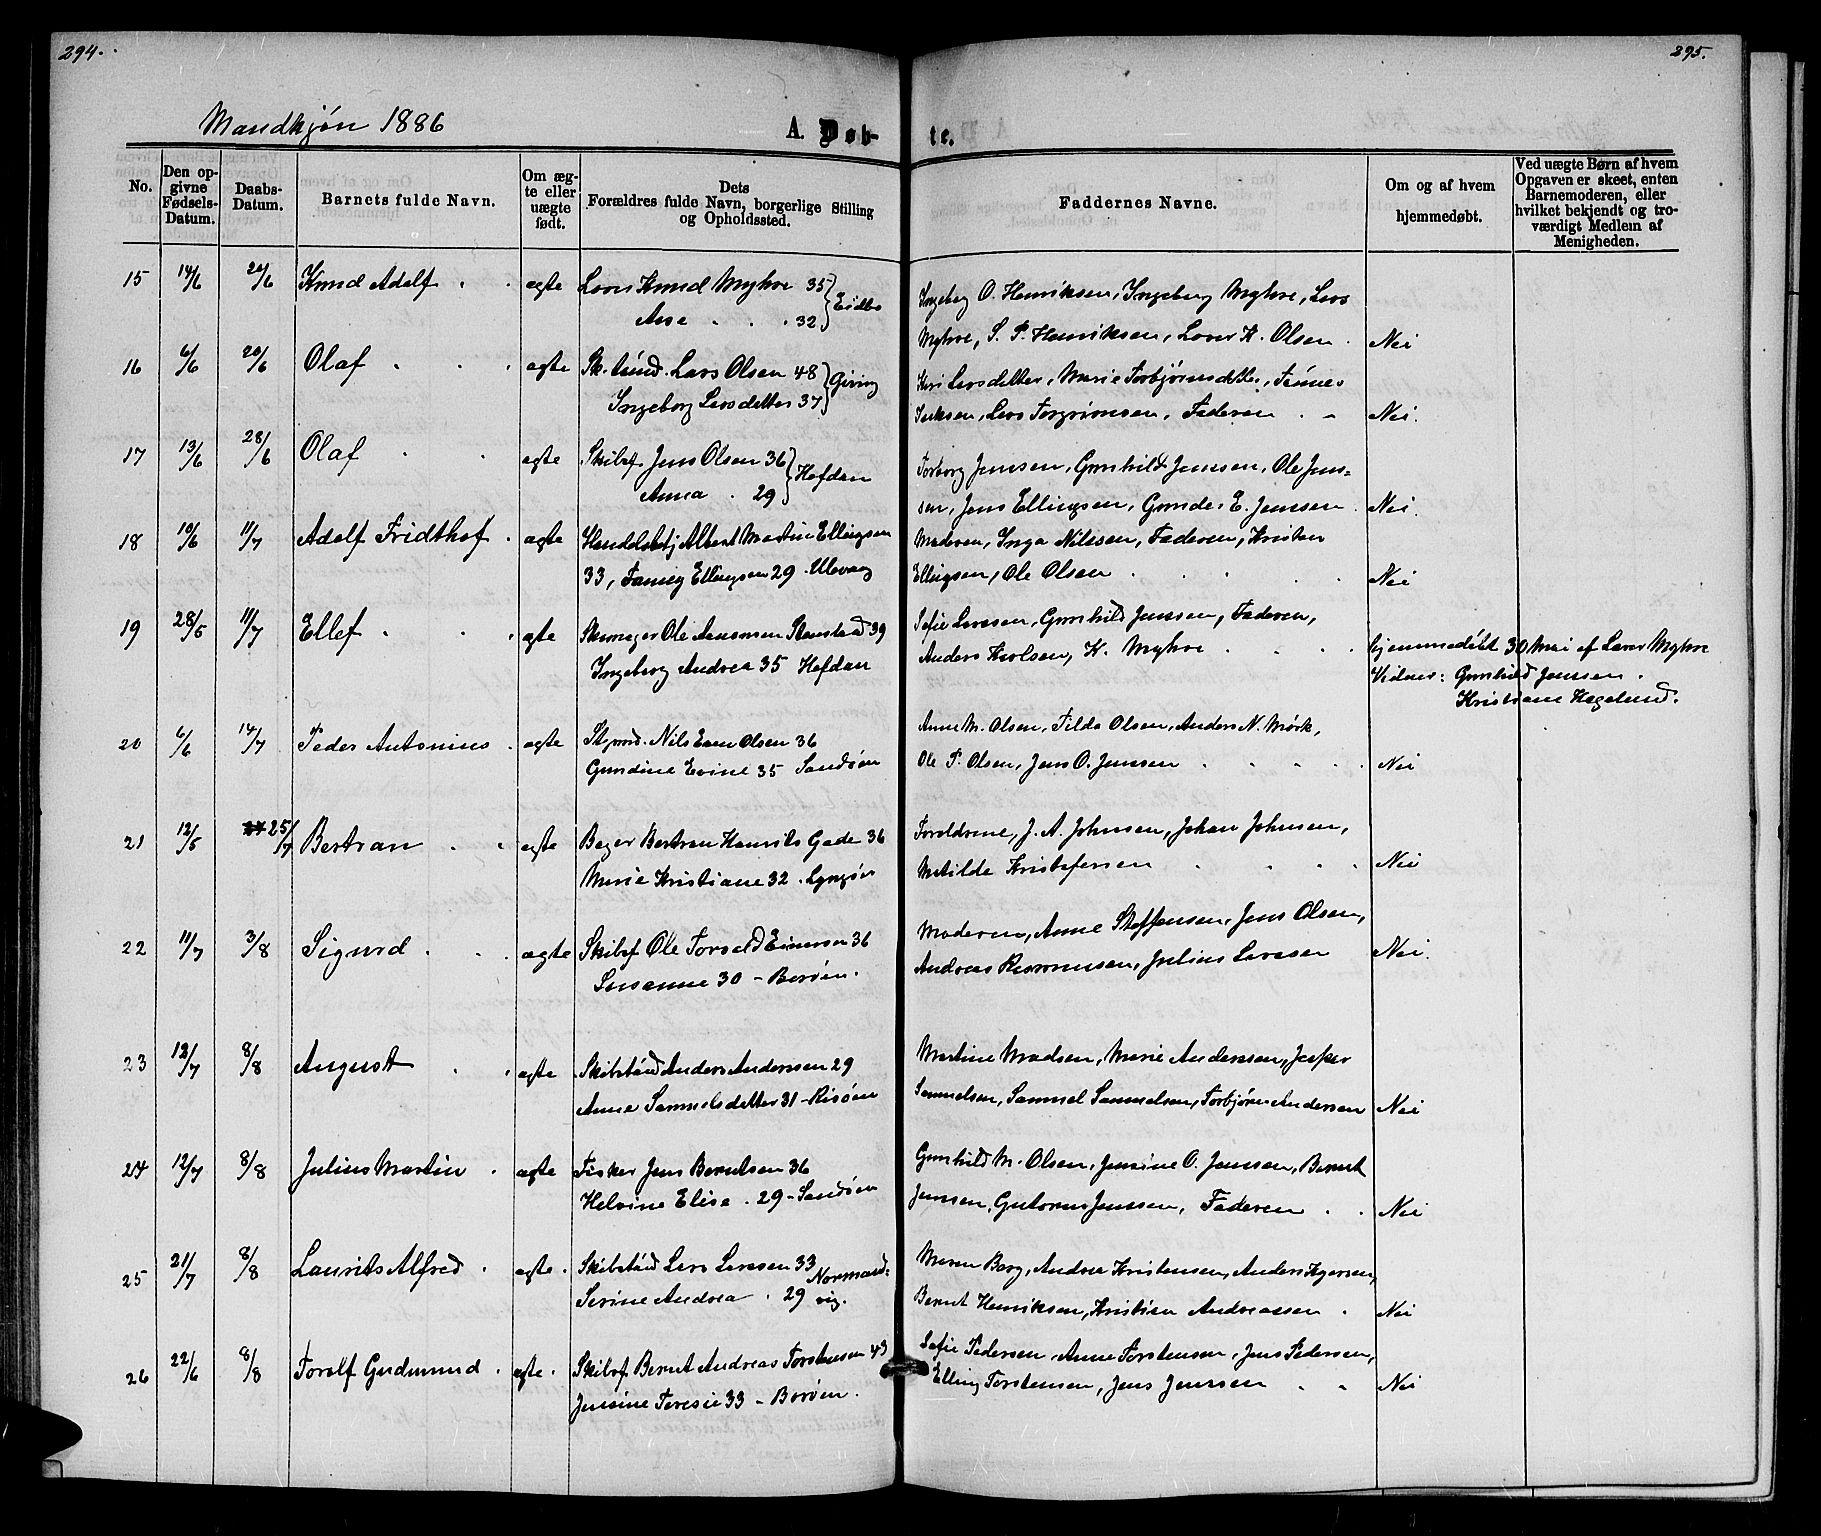 294.
295.
Mandkjøn 1886
A. Døb-
te.
No.
Den op-
givne
Fødsels-
Datum.
Daabs-
Datum.
Barnets fulde Navn.
Om æg-
te eller
uægte
født.
Dets
Forældres fulde Navn, borgerlige Stilling
og Opholdssted.
Faddernes Navne.
Om og af hvem
hjemmedøbt.
Ved uægte Børn af hvem
Opgaven er skeet, enten
Barnemoderen, eller
hvilket bekjendt og tro-
værdigt Medlem af
Menigheden.
15 14/6 Knud Adolf . . ægte Knud Myhre 35
32
Ingeborg O. Henriksen, Ingeborg Myhre, Lars
Myhre, S. P. Henriksen, K. Olsen . Nei
16 6/6 20/6 Olaf . . . ægte Lars Olsen 48 Giving
Ingeborg Larsdatter 37
Larsdatter, Marie Torbjørnsdatter,
Lars Faderen . . Nei.
17 13/6 28/6 Olaf . . ægte Skibsf. Jens Olsen 36 Hafdan
Anna . 29
Torborg Jenssen, Gunhild Jenssen, Ole Jens-
sen, Jens Ellingsen, E. Jenssen . Nei.
18 10/6 11/7 Adolf Fridthof . ægte Albert Martin Ellingsen
33, Ellingsen 29
Moderen, Inga Nilssen, Faderen, Kristen
Ellingsen, Ole Olsen . . . . Nei
19 28/5 11/7 Ellef . . . ægte Skomager Ole 39
Ingeborg Andrea 35 Hafdan
Sofie Larssen, Gunhild Jenssen, Faderen,
Anders Karlsen, K. Myhre . . .
hjemmedøbt 30 Mai af Myhre
Vidner: Gunhild Jenssen .
Kristiane Hagelund.
20 6/6 14/7 Peder Antonius . ægte Nils Olsen 36
Gundine Evine 35 Sandøen
Anne M. Olsen, Tilda Olsen, Anders N. Mørk,
Ole P. Olsen, Jens O. Jenssen . . . Nei
21 12/5 25/7 Bertran . . ægte Bager Bertran Henrik Gade 36
Marie Kristiane 32 . Lyngør
Forældrene, J. A. Johnsen, Johan Johnsen,
Matilde Kristofersen . . . . Nei
22 11/7 3/8 Sigurd . . ægte Skibsf Ole Torvald Einersen 36
Susanne 30 - Borøen.
Moderen, Anne Steffensen, Jens Olsen,
Andreas Rasmussen, Julius Larssen Nei.
23 12/7 8/8 August . . ægte Skibstømd Anders Anderssen 29
Anne Samuelsdatter 31 - Risøen
Martine Madsen, Marie Anderssen, Jesper
Samuelsen, Samuel Samuelsen, Torbjørn Andersen Nei
24 12/7 8/8 Julius Martin . ægte Fisker Jens Berntsen 36
Helvine Elise . 29 - Sandøen
Gunhild M. Olsen, Jensine O. Jenssen, Bernt
Jenssen, Jenssen, Faderen . . Nei
25 21/7 8/8 Laurits Alfred . ægte . Skibstømd Lars Larssen 33 Normand-
Serine Andrea . 29 vig.
Maren Borg, Andrea Kristensen, Anders
Bernt Henriksen, Kristian Andreassen . Nei
26 22/6 8/8 Toralf Gudmund . ægte . Skibsf Bernt Andreas Torstensen 43
Jensine Teresie 33 - Borøen .
Sofie Pedersen, Anne Torstensen, Jens Pedersen,
Elling Torstensen, Jens Jenssen . . Nei